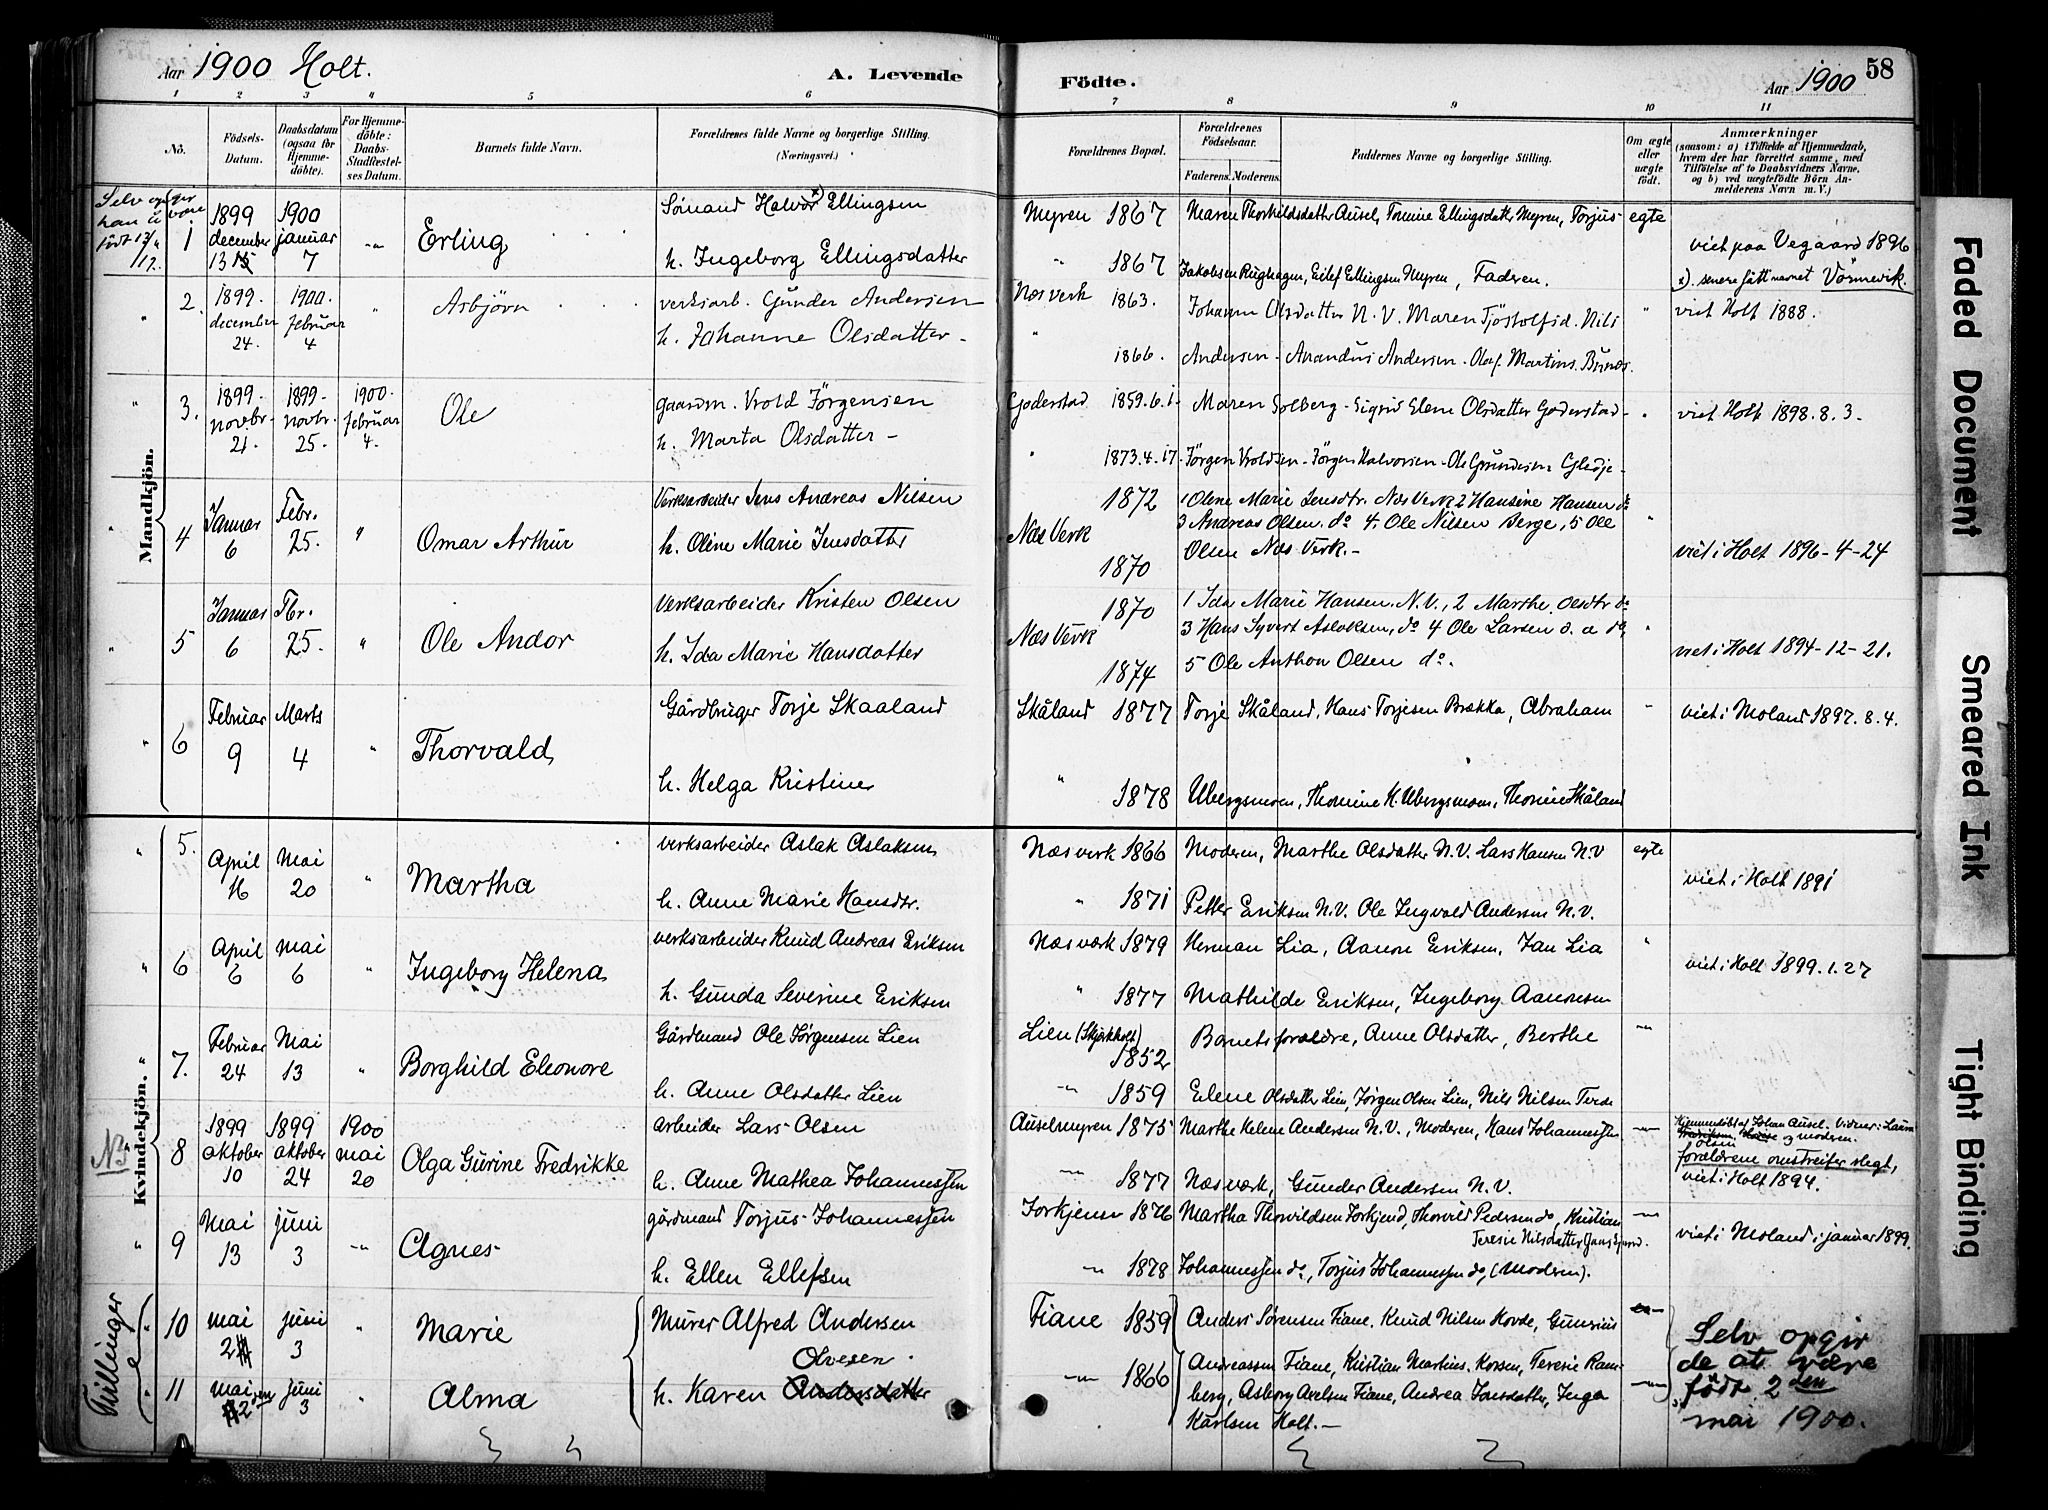 Aar 1900 Holt.
A. Levende
Födte.
Aar 1900
58
1 2 3 4 5 6 7 8 9 10 11
No.
Födsels-Datum.
Daabsdatum (ogsaa for Hjemme-döbte).
For Hjemme-döbte: Daabs-Stadfæstel-ses Datum.
Barnets fulde Navn.
Forældrenes fulde Navne og borgerlige Stilling. (Næringsvei.)
Forældrenes Bopæl.
Forældrenes Födselsaar.
Faderens. Moderens.
Faddernes Navne og borgerlige Stilling.
Om ægte eller uægte födt.
Anmærkninger (saasom: a) i Tilfælde af Hjemmedaab, hvem der har forrettet samme, med Tilföielse af to Daabsvidners Navne, og b) ved uægtefödte Börn An-melderens Navn m. V.)
Mandkjön.
1 1899 december 13 1900 januar 7 " Erling
Halvor Ellingsen
h. Ingeborg Ellingsdatter
Myren 1867
" 1867
Maren Thorkildsdatter Ausel, Tomine Ellingsdatr, Myren, Torjus
Jakobsen Rughagen, Eilef Ellingsen Myren, Faderen.
egte
viet paa Vegaard 1896
x). senere fått navnet Vörmevik.
2. 1899. december 24. 1900. februar 4 " Asbjörn
verksarb. Gunder Andersen
h. Johanne Olsdatter -
Næs verk 1863.
" 1866.
Johanne Olsdatter N. V. Maren Tjöstolfsd. Nils
Andersen - Anandus Andersen - Olaf Martins. Bunæs.
" viet Holt 1888.
3. 1899- novbr- 21. 1899- novbr. 25. 1900. februar 4. Ole
gaardm. Vrold Jörgensen
h. Marta Olsdatter -
Goderstad 1859.6.1.
" 1873.4.17.
Maren Solberg - Sigrid Elene Olsdatter Goderstad -
Jörgen Vroldsen - Jörgen Halvorsen - Ole Gundersen Glidje -
viet Holt 1898.8.3.
4 Januar 6 Febr. 25. " Omar Arthur
Verksarbeider Jens Andreas Nilsen
h. Oline Marie Jensdatter
Næs Verk 1872
1870
1 Olene Marie Jensdtr. Næs Verk 2 Hansine Hansen do
3 Andreas Olsen. do 4. Ole Nilsen Berge, 5 Ole
Olsen Næs Verk. -
viet i Holt 1896-4-24
5 Januar 6 Fbr. 25. " Ole Andor
Verksarbeider Kristen Olsen
h. Ida Marie Hansdatter
Næs Verk 1870
1874
1 Ida Marie Hansen. N.V., 2 Marthe Olsdtr do
3 Hans Syvert Aslaksen, do 4 Ole Larsen
5 Ole Anthon Olsen do.
viet i Holt 1894-12-21.
6 Februar 9 Marts 4 " Thorvald
Gårdbruger Torje Skaaland
h. Helga Kristine
Skåland 1877
" 1878
Torje Skåland, Hans Torjesen Brække, Abraham
Ubergsmoen, Thomine K. Ubergsmoen, Thomine Skåland
viet i Moland 1897.8.4.
Kvindekjön.
5. April 16 Mai 20 " Martha
verksarbeider Aslak Aslaksen
h. Anne Marie Hansdtr.
Næs verk 1866
" 1871
Moderen, Marthe Olsdatter N.V. Lars Hansen N.V
Petter Eriksen N.V. Ole Ingvald Andersen N.V.
egte
viet i Holt 1891
6 April 6 Mai 6 " Ingeborg Helena
verksarbeider Knud Andreas Eriksen
h. Gunda Severine Eriksen
Næs værk 1879
" 1877
Herman Lia, Aanon Eriksen, Jan Lia
Mathilde Eriksen, Ingeborg Aanonsen
" viet i Holt 1899.1.27
7. Februar 24 Mai 13 " Borghild Eleonore
Gårdmand Ole Jørgensen Lien
h. Anne Olsdatter Lien
Lien (Skjækholt) 1852
" 1859
Barnets forældre, Anne Olsdatter, Berthe
Elene Olsdatter Lien, Jørgen Olsen Lien, Nils Nilsen Terde
8 1899 oktober 10 1899 oktober 24 1900 mai 20 Olga Gurine Fredrikke
arbeider Lars Olsen
h. Anne Mathea Johannessen
Auselmyren 1875
" 1877
Marthe Helene Andersen N.V., Moderen, Hans Johannessen
Næs værk, Gunder Andersen N.V.
Hjemmedöbt af Johan Ausel. Vidner: Laura
Olsen og moderen.
forældrene omstreifer slegt,
viet i Holt 1894.
9 Mai 13 juni 3 " Agnes
gårdmand Torjus Johannessen
h. Ellen Ellefsen
Forkjenn 1876
" 1878
Martha Thorvildsen Forkjend, Thorvild Pedersen do, Kristian
Teresie Nilsdatter
Johannessen do, Torjus Johannessen do, (Moderen).
viet i Moland i januar 1899.
Tvillinger
10 mai 2 juni 3 " Marie
11 mai 2 juni 3 " Alma
Murer Alfred Andersen
Olvesen.
h. Karen Andersdatter
Fiane 1859
" 1866
Anders Sørensen Fiane, Knud Nilsen Hovde, Gunerius
Andreassen Fiane, Kristian Martins. Korsen, Teresie Ram-
berg, Asborg Axelsen Fiane, Andrea Jensdatter, Inga
Karlsen Holt. -
Selv opgir
de at være
født 2den
mai 1900.
Faded Document
Smeared Ink
Tight Binding